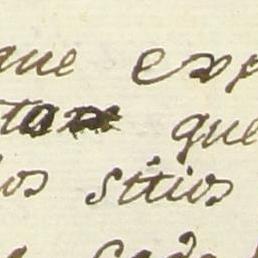 que exp
ta que
los sitios